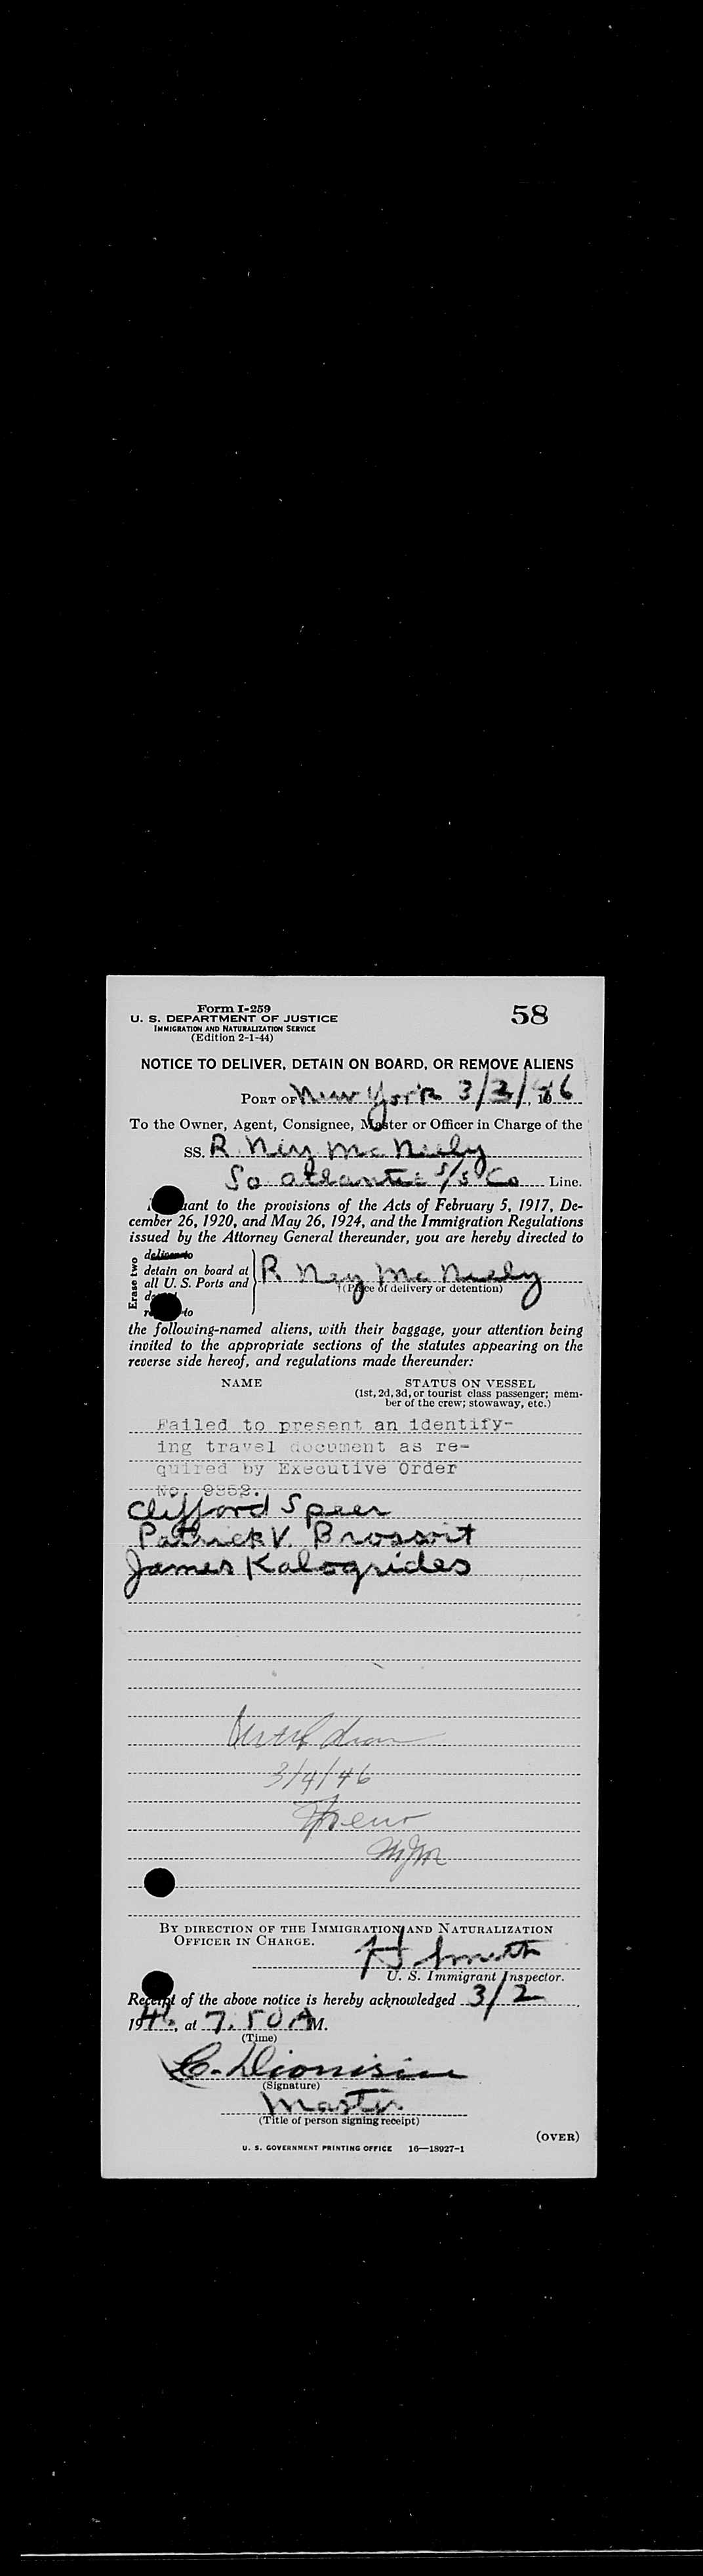 Form I-259
U. S. DEPARTMENT OF JUSTICE
IMMIGRATION AND NATURALIZATION SERVICE
(Edition 2-1-44)
58
NOTICE TO DELIVER, DETAIN ON BOARD, OR REMOVE ALIENS
PORT OF New York 3/2/46
To the Owner, Agent, Consignee, Master or Officer in Charge of the
SS. R Ney McNeely
So Atlantic S/S Co Line.
uant to the provisions of the Acts of February 5, 1917, De-
cember 26, 1920, and May 26, 1924, and the Immigration Regulations
issued by the Attorney General thereunder, you are hereby directed to
Erase two
deliver to
detain on board at
all U. S. Ports and
to
R Ney McNeely
(Place of delivery or detention)
the following-named aliens, with their baggage, your attention being
invited to the appropriate sections of the statutes appearing on the
reverse side hereof, and regulations made thereunder:
NAME
STATUS ON VESSEL
(1st, 2d, 3d, or tourist class passenger; mem-
ber of the crew; stowaway, etc.)
Failed to present an identify-
ing travel document as re-
quired by Executive Order
No. 9352.
Clifford Speer
Patrick V. Brossoit
James Kalogrides
3/4/46
MJM
BY DIRECTION OF THE IMMIGRATION AND NATURALIZATION
OFFICER IN CHARGE.
H Smith
U. S. Immigrant Inspector.
Receipt of the above notice is hereby acknowledged 3/2
1946, at 7.50 AM.
(Time)
(Signature)
Master
(Title of person signing receipt)
(OVER)
U. S. GOVERNMENT PRINTING OFFICE 16—18927-1